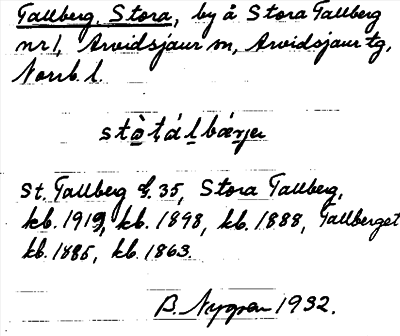 Tallberg, Stora, by å Stora Tallberg
nr 1, Arvidsjaur sn, Arvidsjaur tg,
Norrb. l.
stòtálbærjer
St. Tallberg J. 35, Stora Tallberg,
kb. 1919, kb. 1898, kb. 1888, Tallberget
kb. 1885, kb. 1863.
B. Nygren 1932.